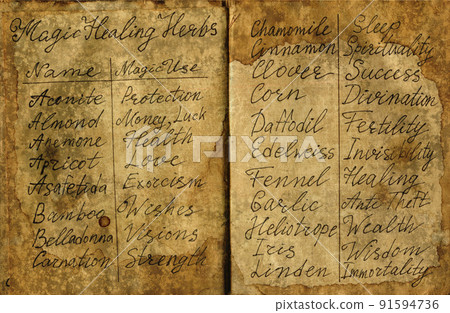 Magic Healing Herbs
Name Magic Use
Aconite Protection
Almond Money, Luck
Anemone Health
Apricot Love
Asafetida Exorcism
Bamboo Wishes
Belladonna Visions
Carnation Strength
Chamomile Sleep
Cinnamon Spirituality
Clover Success
Corn Divination
Daffodil Fertility
Edelweiss Invisibility
Fennel Healing
Garlic Ante theft
Heliotrope Wealth
Iris Wisdom
Linden Immortality
PIXTA
pixta.jp - 91594736